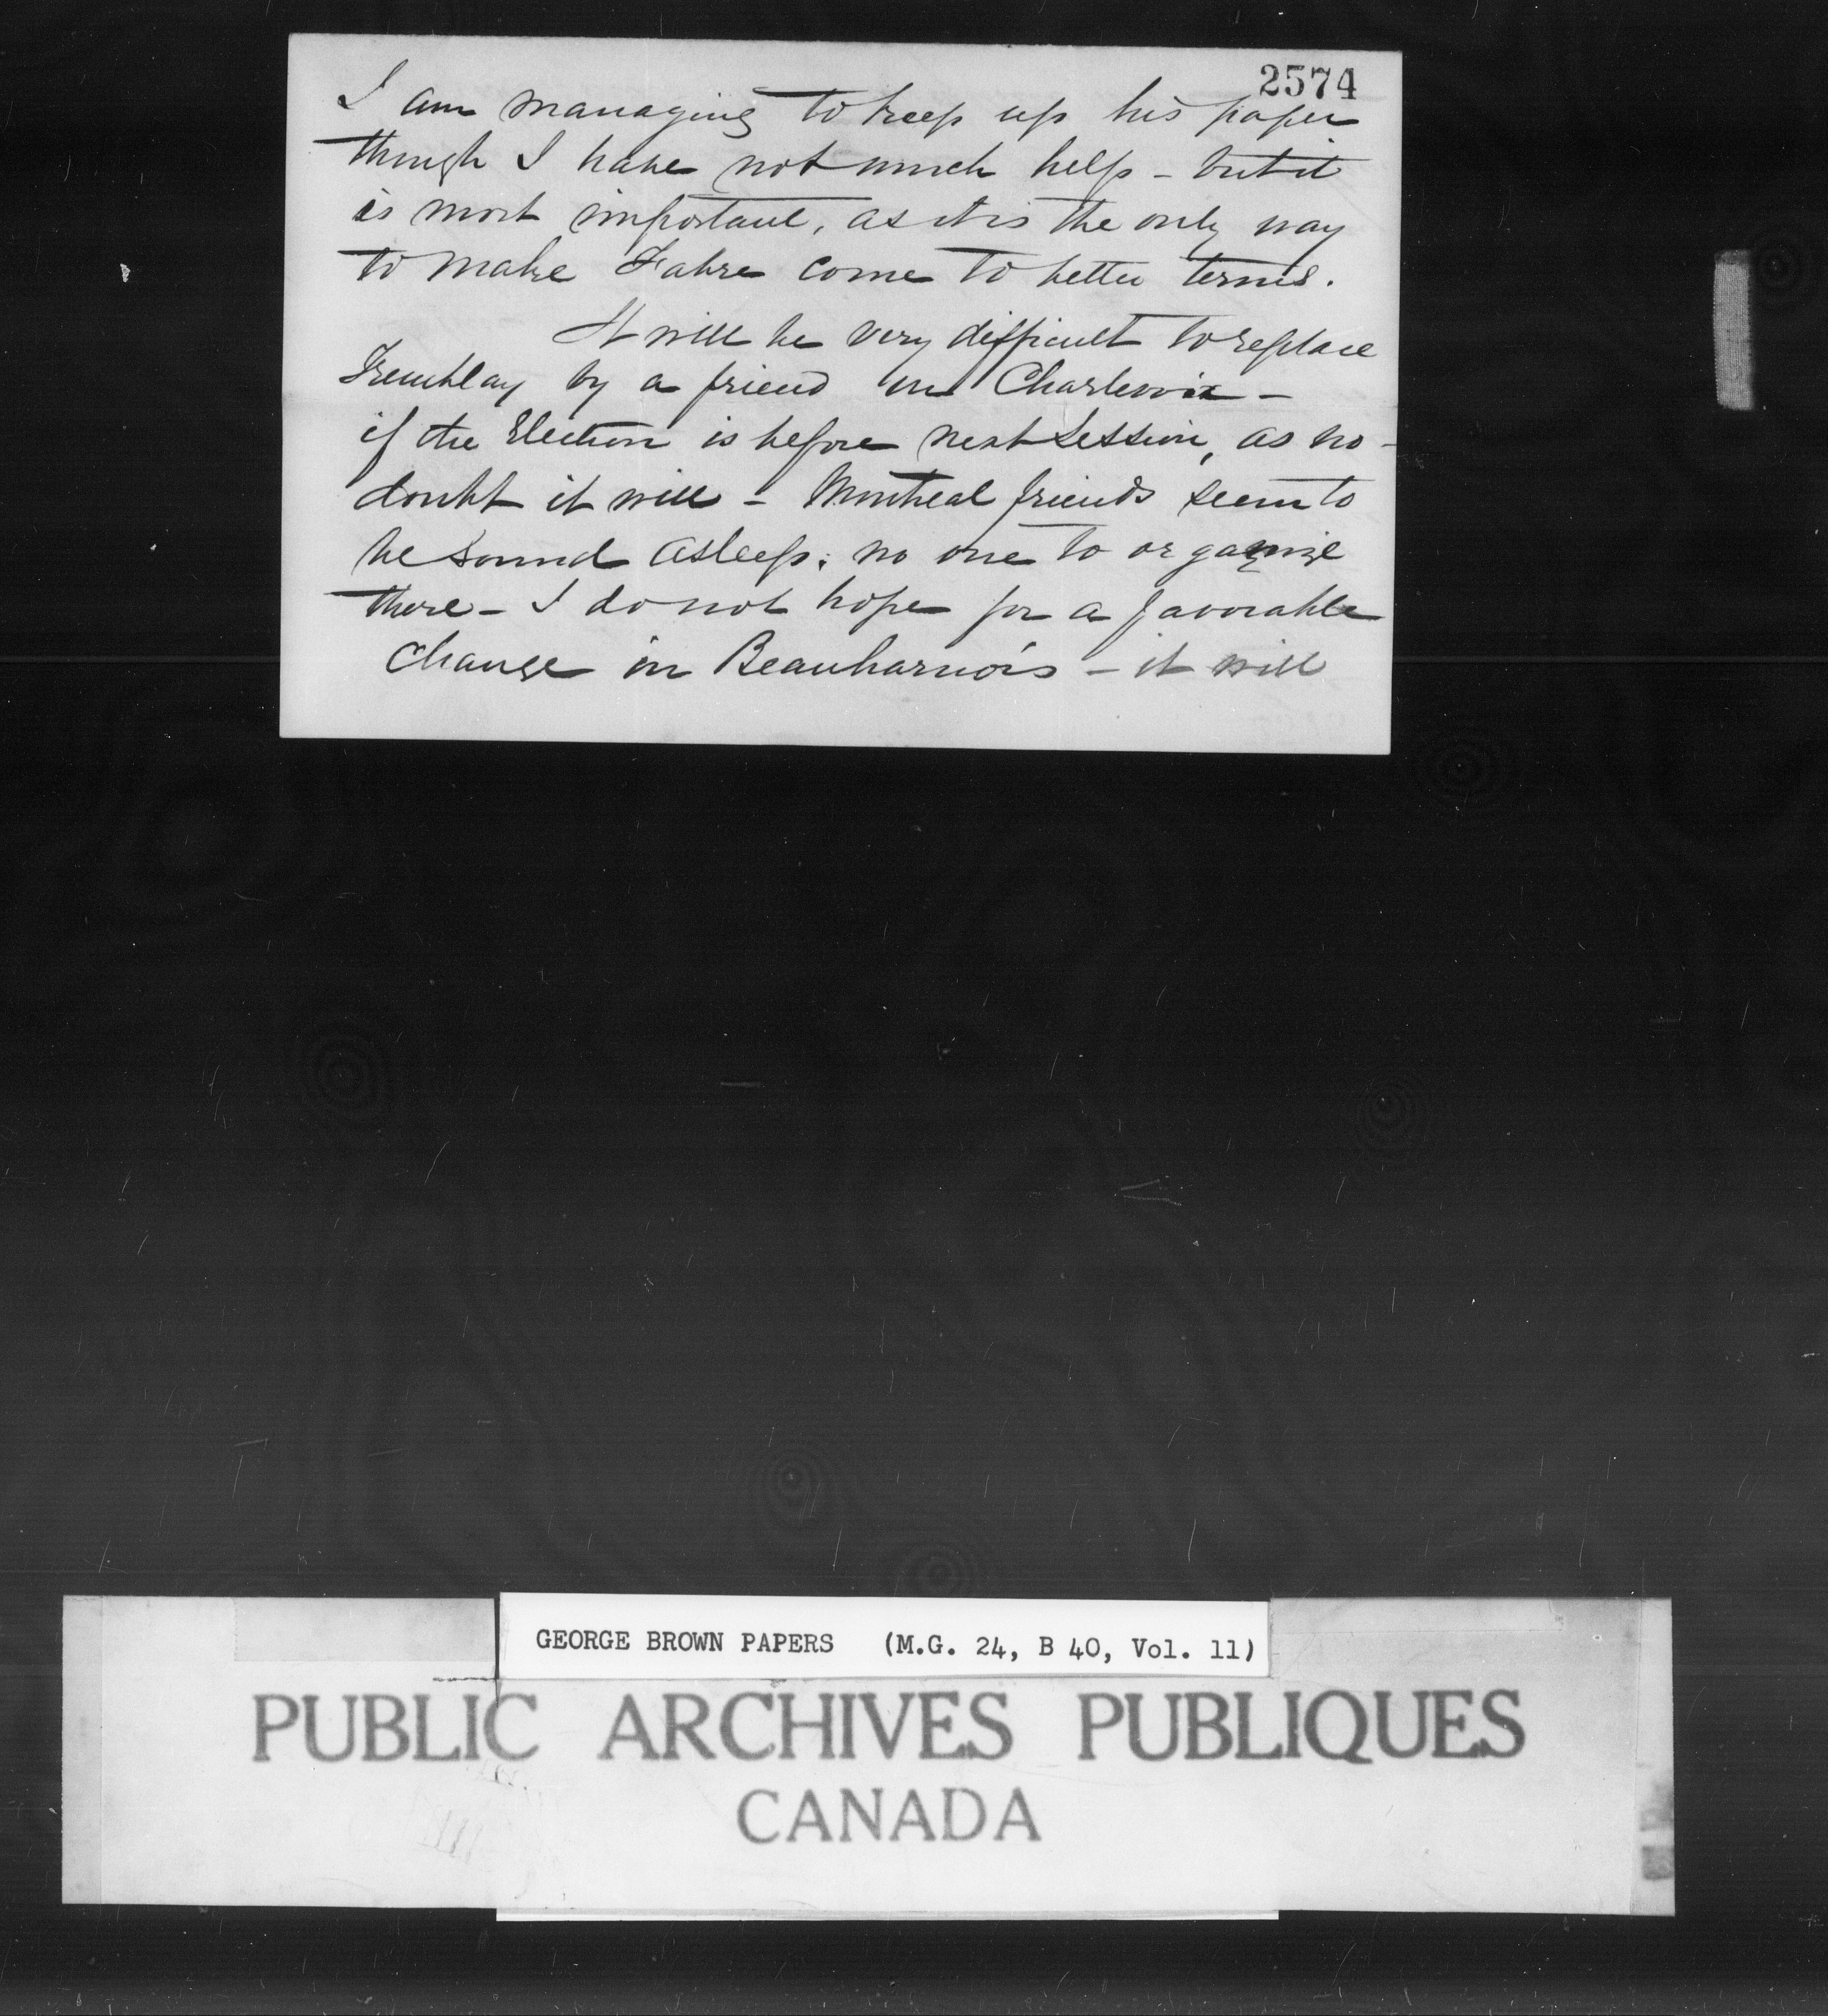 2574
I am managing to keep up his paper
though I have not much help - but it
is most important, as it is the only way
to make Fabre come to better terms.
It will be very difficult to replace
Tremblay by a friend in Charlevoix -
if the Election is before next Session, as no-
doubt it will - Montreal friends seem to
be sound asleep; no one to organize
there - I do not hope for a favorable
change in Beauharnois - it will
GEORGE BROWN PAPERS (M.G. 24, B 40, Vol. 11)
PUBLIC ARCHIVES PUBLIQUES
CANADA